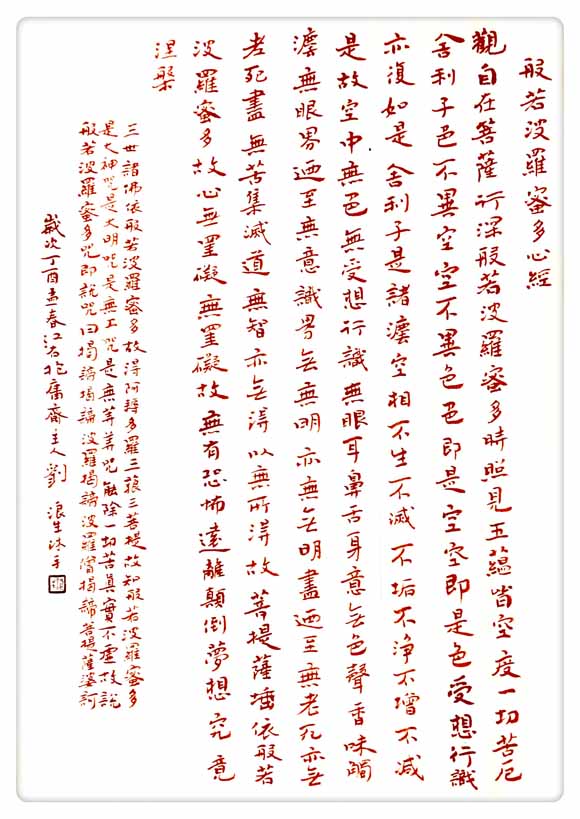 般若波羅蜜多心經
觀自在菩薩行深般若波羅蜜多時照見五蘊皆空度一切苦厄
舍利子色不異空空不異色色即是空空即是色受想行識
亦復如是舍利子是諸灋空相不生不滅不垢不淨不增不減
是故空中無色無受想行識無眼耳鼻舌身意无色聲香味觸
灋無眼界迺至無意識界无無明亦無无明盡迺至無老死亦无
老死盡無苦集滅道無智亦无得以無所得故菩提薩埵依般若
波羅蜜多故心无罣礙無罣礙故無有恐怖遠離顛倒夢想究竟
涅槃
三世諸佛依般若波羅蜜多故得阿耨多羅三藐三菩提故知般若波羅蜜多
是大神咒是大明咒是無上咒是無等等咒能除一切苦真實不虛故說
般若波羅蜜多咒即說咒曰揭諦揭諦波羅揭諦波羅僧揭諦菩提薩婆訶
歲次丁酉孟春江右抱庸齋主人劉浪生沐手